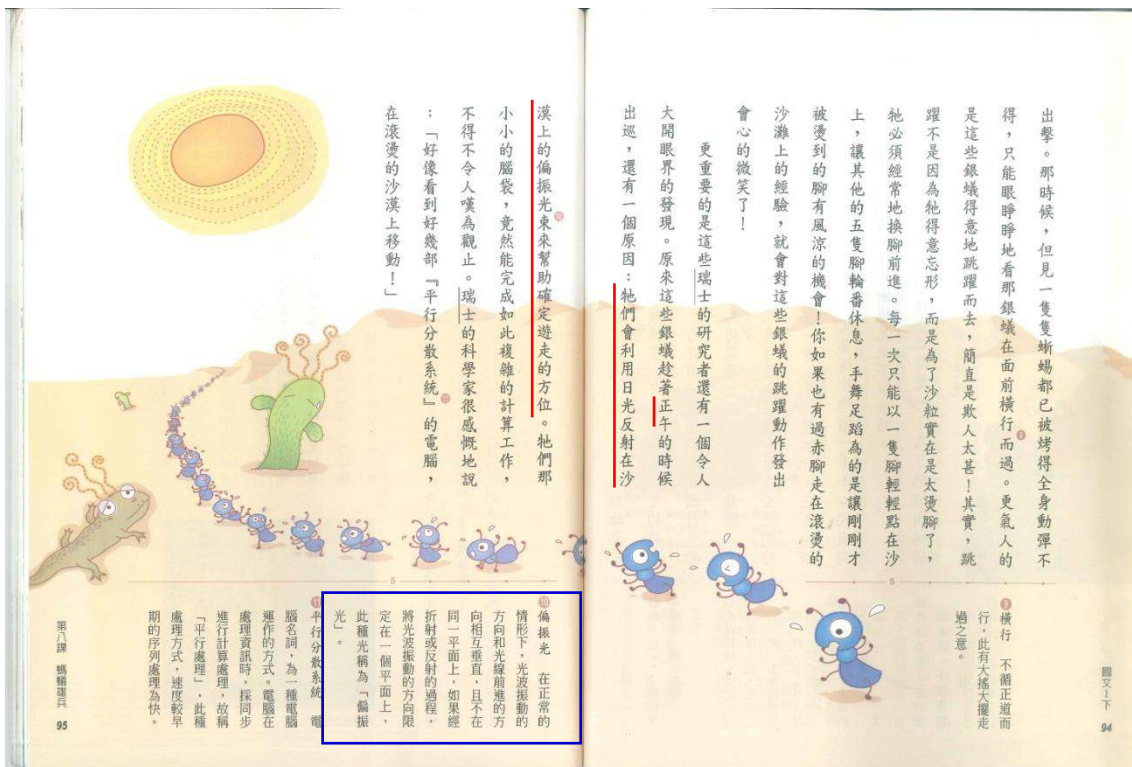 出擊。那時候，但見一隻隻蜥蜴都已被烤得全身動彈不
得，只能眼睜睜地看那銀蟻在面前橫行⑨而過。更氣人的
是這些銀蟻得意地跳躍而去，簡直是欺人太甚！其實，跳
躍不是因為牠得意忘形，而是為了沙粒實在是太燙腳了，
牠必須經常地換腳前進。每一次只能以一隻腳輕輕點在沙
上，讓其他的五隻腳輪番休息，手舞足蹈為的是讓剛剛才
被燙到的腳有風涼的機會！你如果也有過赤腳走在滾燙的
沙灘上的經驗，就會對這些銀蟻的跳躍動作發出
會心的微笑了！
更重要的是這些瑞士的研究者還有一個令人
大開眼界的發現。原來這些銀蟻趁著正午的時候
出巡，還有一個原因：牠們會利用日光反射在沙
⑨橫行　不循正道而
行，此有大搖大擺走
過之意。
5
國文1下
94
漠上的偏振光⑩束來幫助確定遊走的方位。牠們那
小小的腦袋，竟然能完成如此複雜的計算工作，
不得不令人嘆為觀止。瑞士的科學家很感慨地說
：「好像看到好幾部『平行分散系統⑪』的電腦，
在滾燙的沙漠上移動！」
5
⑩偏振光　在正常的
情形下，光波振動的
方向和光線前進的方
向相互垂直，且不在
同一平面上，如果經
折射或反射的過程，
將光波振動的方向限
定在一個平面上，
此種光稱為「偏振
光」。
⑪平行分散系統　電
腦名詞，為一種電腦
運作的方式。電腦在
處理資訊時，採同步
進行計算處理，故稱
「平行處理」，此種
處理方式，速度較早
期的序列處理為快。
第八課　螞蟻雄兵
95